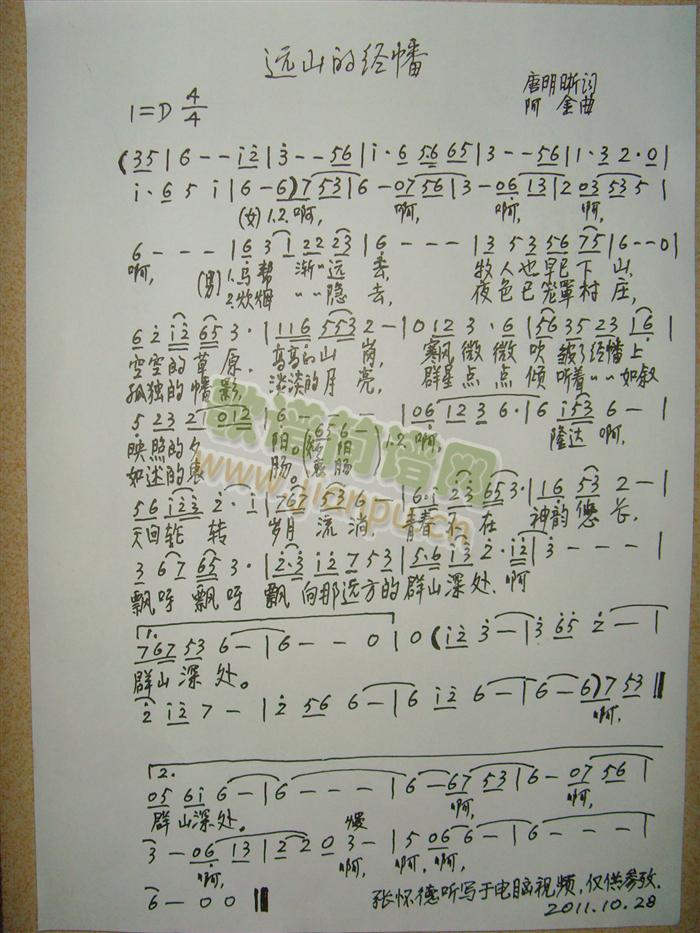 远山的经幡
唐明晰词
1=D 4/4
阿金曲
(35|6--i2|3--56|i·6 56 65|3--56|1·3 2·0|
i·6 5 i|6-6)753|6-0756|3-0613|2 03 53 5|
(女)1.2.啊, 啊, 啊, 啊,
6---|6 3 1 22 23|6---|3 5 3 56 75|6--0|
啊, (男)1.马帮 渐〃远 去, 牧人也早已下山,
2.炊烟 〃〃隐去, 夜色已笼罩村庄,
6 2 12 65 3·|116 553 2-|0 12 3·6|56 35 23 16|
空空的草原. 高高的山岗, 寒风微微吹皱了经幡上
孤独的幡影, 淡淡的月亮, 群星点点倾听着〃〃如叙
5 23 2 012|6---|(656-)|06 123 6·|6 i53 6-|
映照的夕 阳。 阳 1.2.啊, 隆达啊,
如述的衷 肠。 衷肠
56 i23 2·i|763 536-|6·i 23 653·|i6 53 2-|
天回轮转 岁月流淌, 青春行在 神韵悠长,
3 67 65 3·|2·3 i2 753|5·6 i3 2·i2|3---|
飘呀飘呀飘向那远方的群山深处、啊
1.
767 53 6-|6--0|0(i2 3-|3 65 2-|
群山深处。
2 i2 7-|2 56 6-|6 i2 6-|6-6)753‖
啊,
2.
05 6i 6-|6---|6-6753|6-0756|
群山深处。 啊, 啊,
3-0613|2 2 0 3-|5 066-|6---|
慢
啊, 啊, 啊, 啊,
6-00‖
张怀德听写于电脑视频,仅供参考.
2011.10.28
歌谱简谱网
www.jianpu.cn